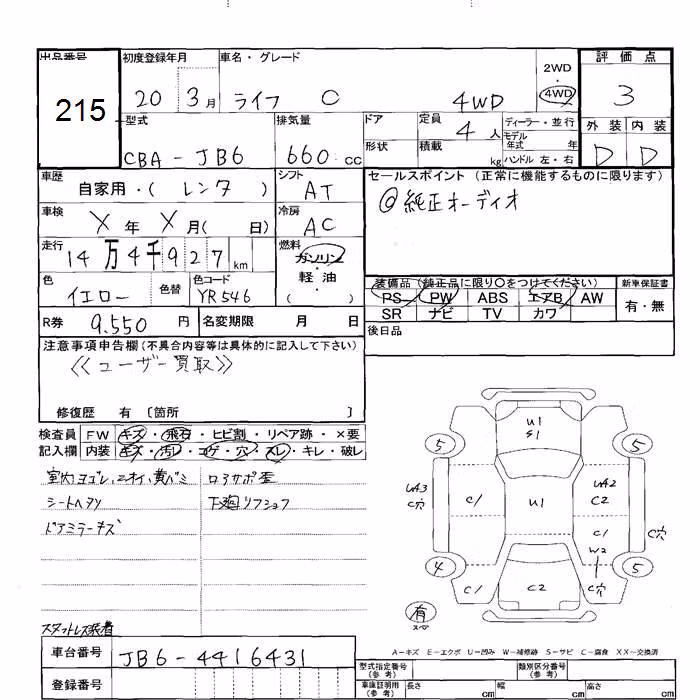 出品番号 初度登録年月 車名・グレード 2WD 評価点
215 20 3月 ライフ C 4WD 4WD 3
型式 排気量 ドア 定員 ディーラー・並行 外装 内装
CBA-JB6 660 cc 4人 モデル年式 年 D D
形状 積載 kg ハンドル 左・右
車歴 シフト セールスポイント (正常に機能するものに限ります)
自家用・( レンタ ) AT ◎純正オーディオ
車検 冷房
X年 X月( 日) AC
走行 燃料
14万4千927km ガソリン・軽油( )
色 色替 色コード 装備品 (純正品に限り○をつけてください) 新車保証書
イエロー YR546 PS PW ABS エアB AW 有・無
SR ナビ TV カワ
R券 9,550円 名変期限 月 日 後日品
注意事項申告欄 (不具合内容等は具体的に記入して下さい)
《ユーザー買取》
修復歴 有 〔箇所 〕
検査員 FW キズ・飛石・ヒビ割・リペア跡・×要
記入欄 内装 キズ・汚レ・コゲ・穴・スレ・キレ・破レ
室内ヨゴレ、ニオイ、黄バミ ロアサポ歪
シートヘタリ 下廻リフショフ
ドアミラーキズ
U1
S1
5 5
UA3 UA2
C穴 C/ U1 C2
C/ C穴
W2
4 5
C/ C2 C穴
有
スペア
A-キズ E-エクボ U-凹み W-補修跡 S-サビ C-腐食 XX-交換済
スタットレス装着
車台番号 JB6-4416431
型式指定番号 (参考) 類別区分番号 (参考)
登録番号 車庫証明用 (参考) 長さ cm 幅 cm 高さ cm